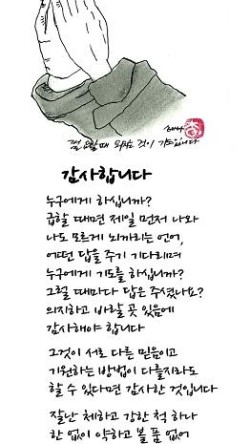 감사합니다
누구에게 하십니까?
급할 때면 제일 먼저 나와
나도 모르게 뇌까리는 언어,
어떤 답을 주기 기다리며
누구에게 기도를 하십니까?
그럴 때마다 답은 주셨나요?
의지하고 바랄 곳 있음에
감사해야 합니다
그것이 서로 다른 믿음이고
기원하는 방법이 다를지라도
할 수 있다면 감사한 것입니다
잘난 체하고 강한 척 하나
한 없이 약하고 볼 품 없어